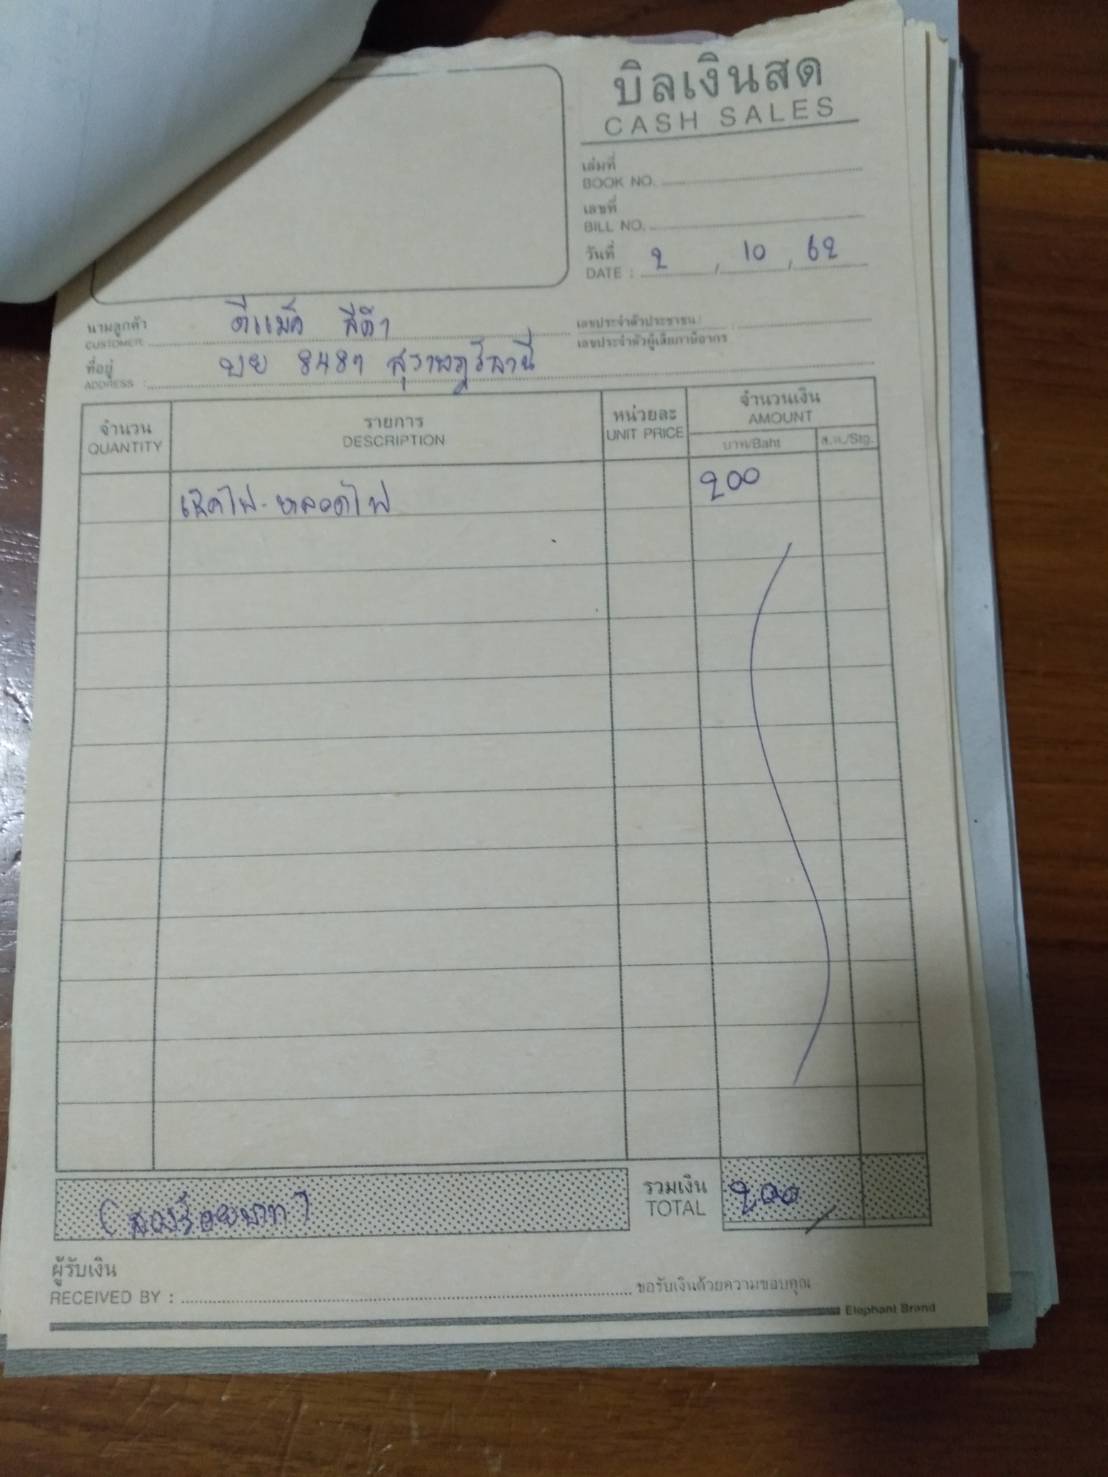 บิลเงินสด
CASH SALES
เล่มที่
BOOK NO.
เลขที่
BILL NO.
วันที่
DATE : 2 , 10 , 62
นามลูกค้า ดีแม็ค สีดำ
CUSTOMER
เลขประจำตัวประชาชน :
เลขประจำตัวผู้เสียภาษีอากร
ที่อยู่ บย 8487 สุราษฎร์ธานี
ADDRESS :
จำนวน
QUANTITY
รายการ
DESCRIPTION
หน่วยละ
UNIT PRICE
จำนวนเงิน
AMOUNT
บาท/Baht ส.ต./Stg.
เช็คไฟ - หลอดไฟ 200
(สองร้อยบาท)
รวมเงิน
TOTAL 200
ผู้รับเงิน
RECEIVED BY : ขอรับเงินด้วยความขอบคุณ
Elephant Brand